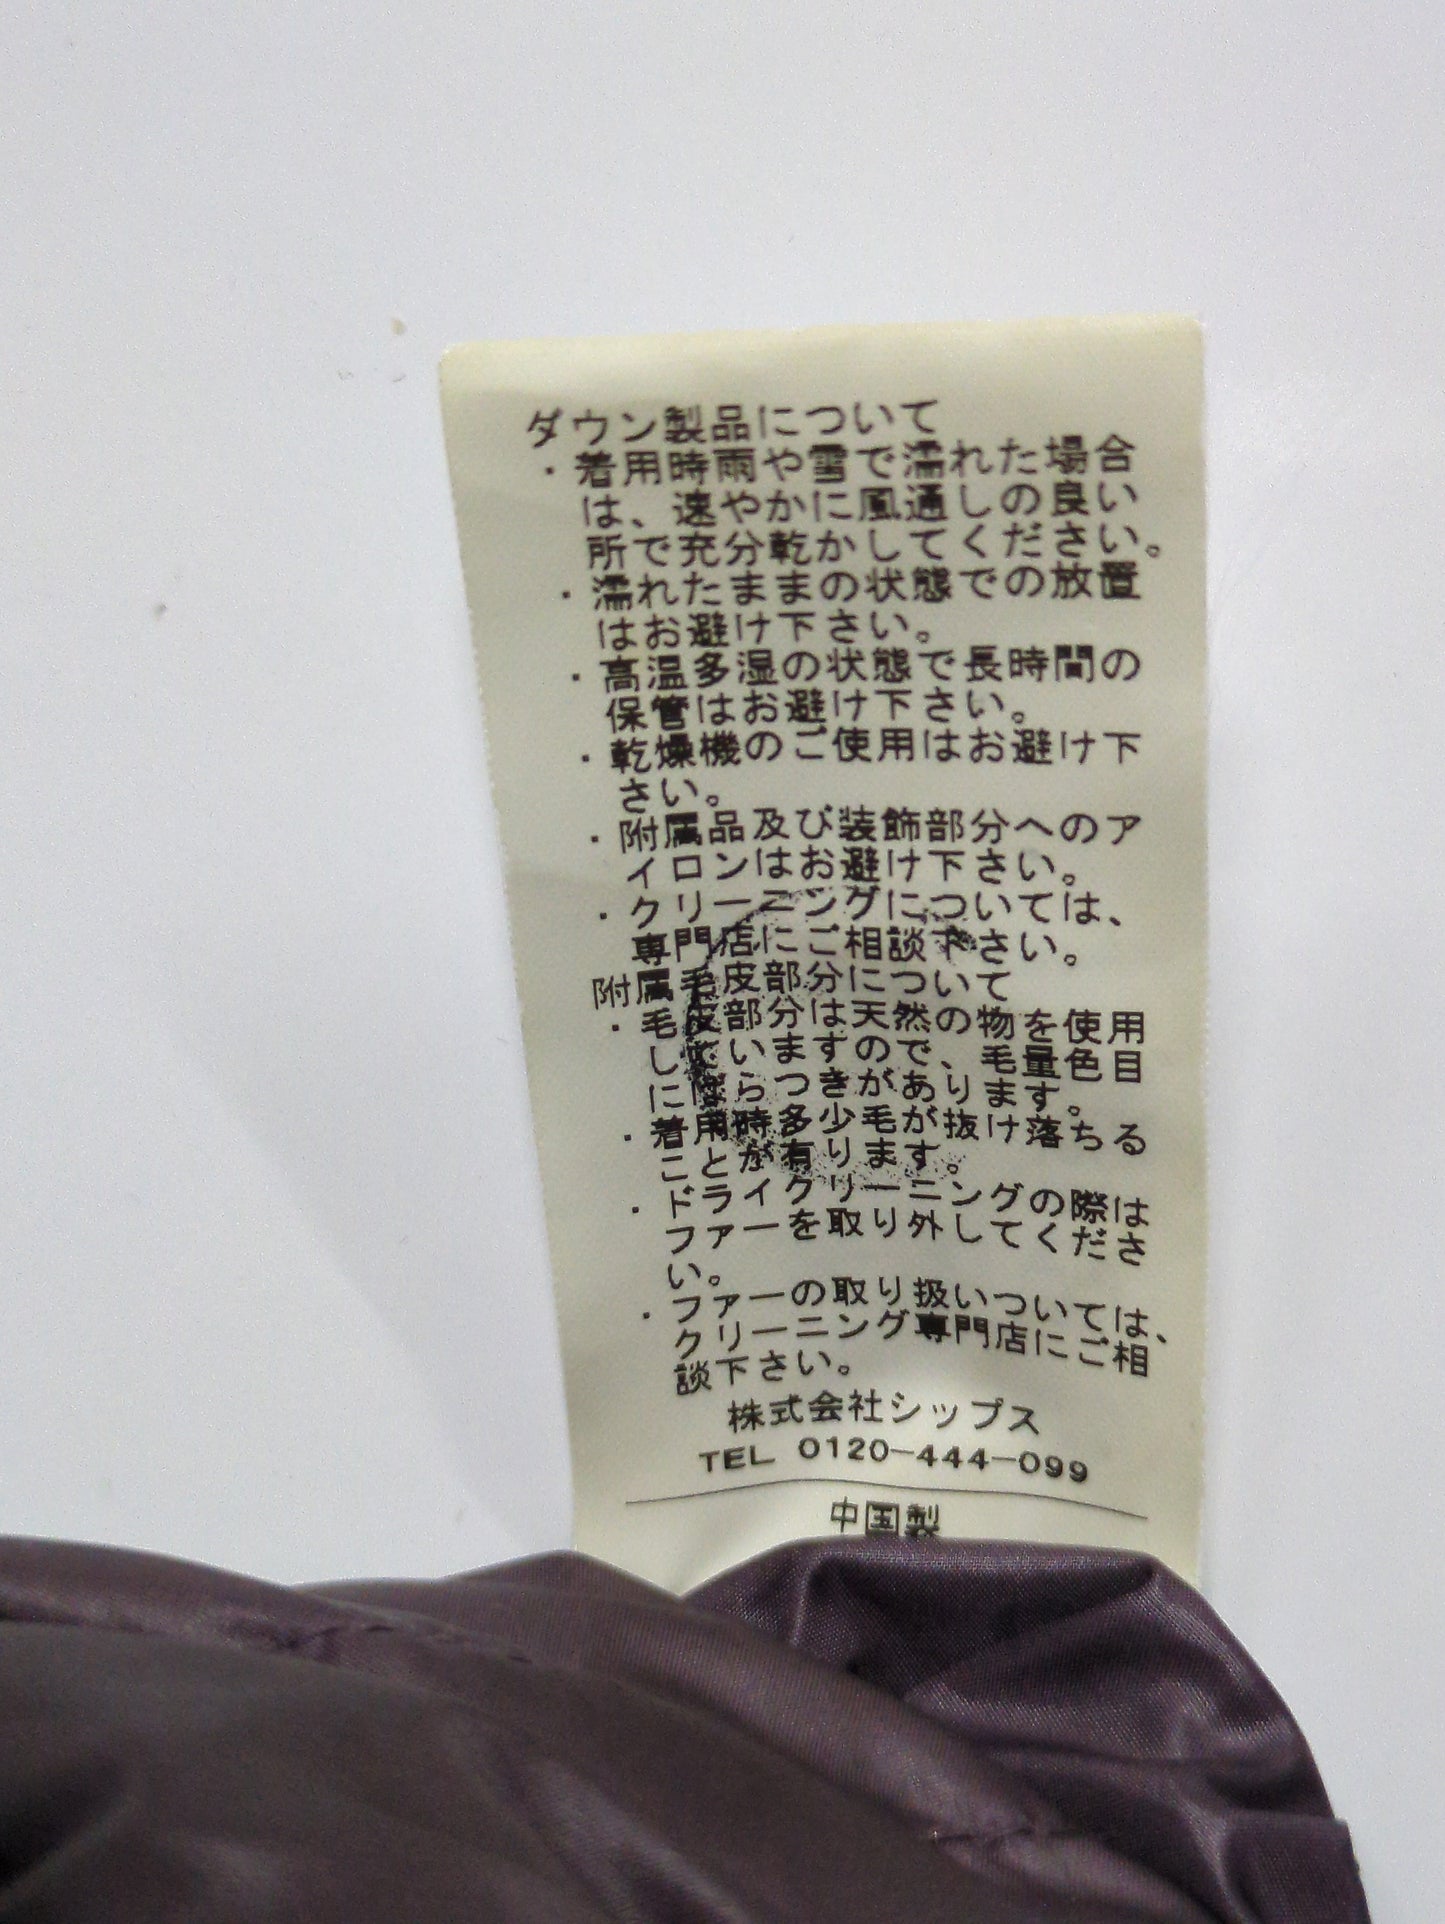 ダウン製品について
・着用時雨や雪で濡れた場合
は、速やかに風通しの良い
所で充分乾かしてください。
・濡れたままの状態での放置
はお避け下さい。
・高温多湿の状態で長時間の
保管はお避け下さい。
・乾燥機のご使用はお避け下
さい。
・附属品及び装飾部分へのア
イロンはお避け下さい。
・クリーニングについては、
専門店にご相談下さい。
附属毛皮部分について
・毛皮部分は天然の物を使用
していますので、毛量色目
にばらつきがあります。
・着用時多少毛が抜け落ちる
ことが有ります。
・ドライクリーニングの際は
ファーを取り外してくださ
い。
・ファーの取り扱いついては、
クリーニング専門店にご相
談下さい。
株式会社シップス
TEL 0120-444-099
中国製